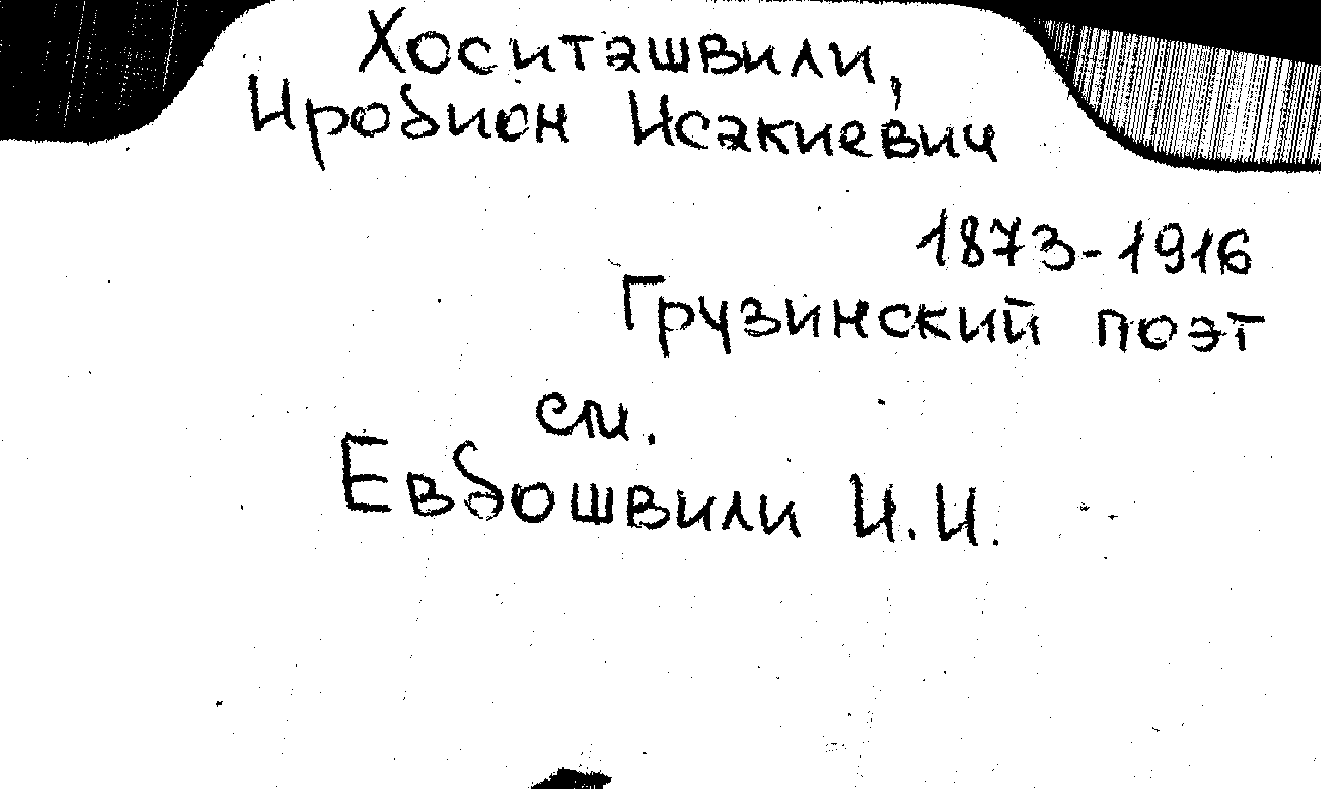 Хоситашвили,
Иробион Исакиевич
1873-1916
Грузинский поэт
см.
Евбошвили И.И.